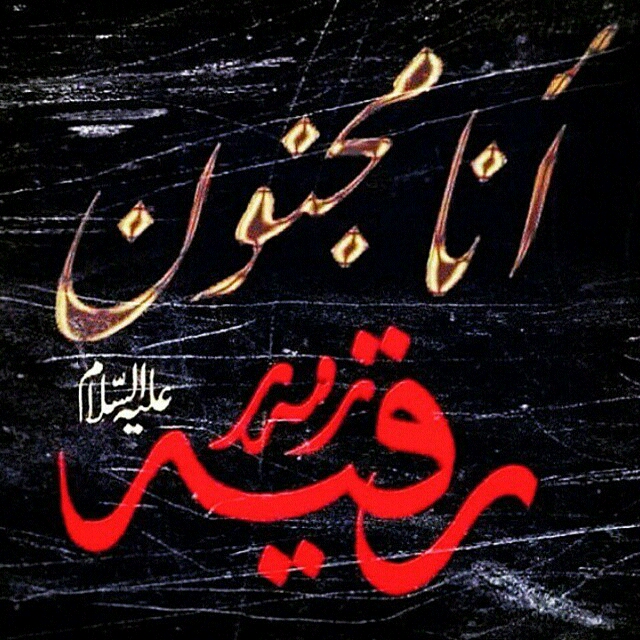 أنا مجنون
رقیه
علیه السّلام